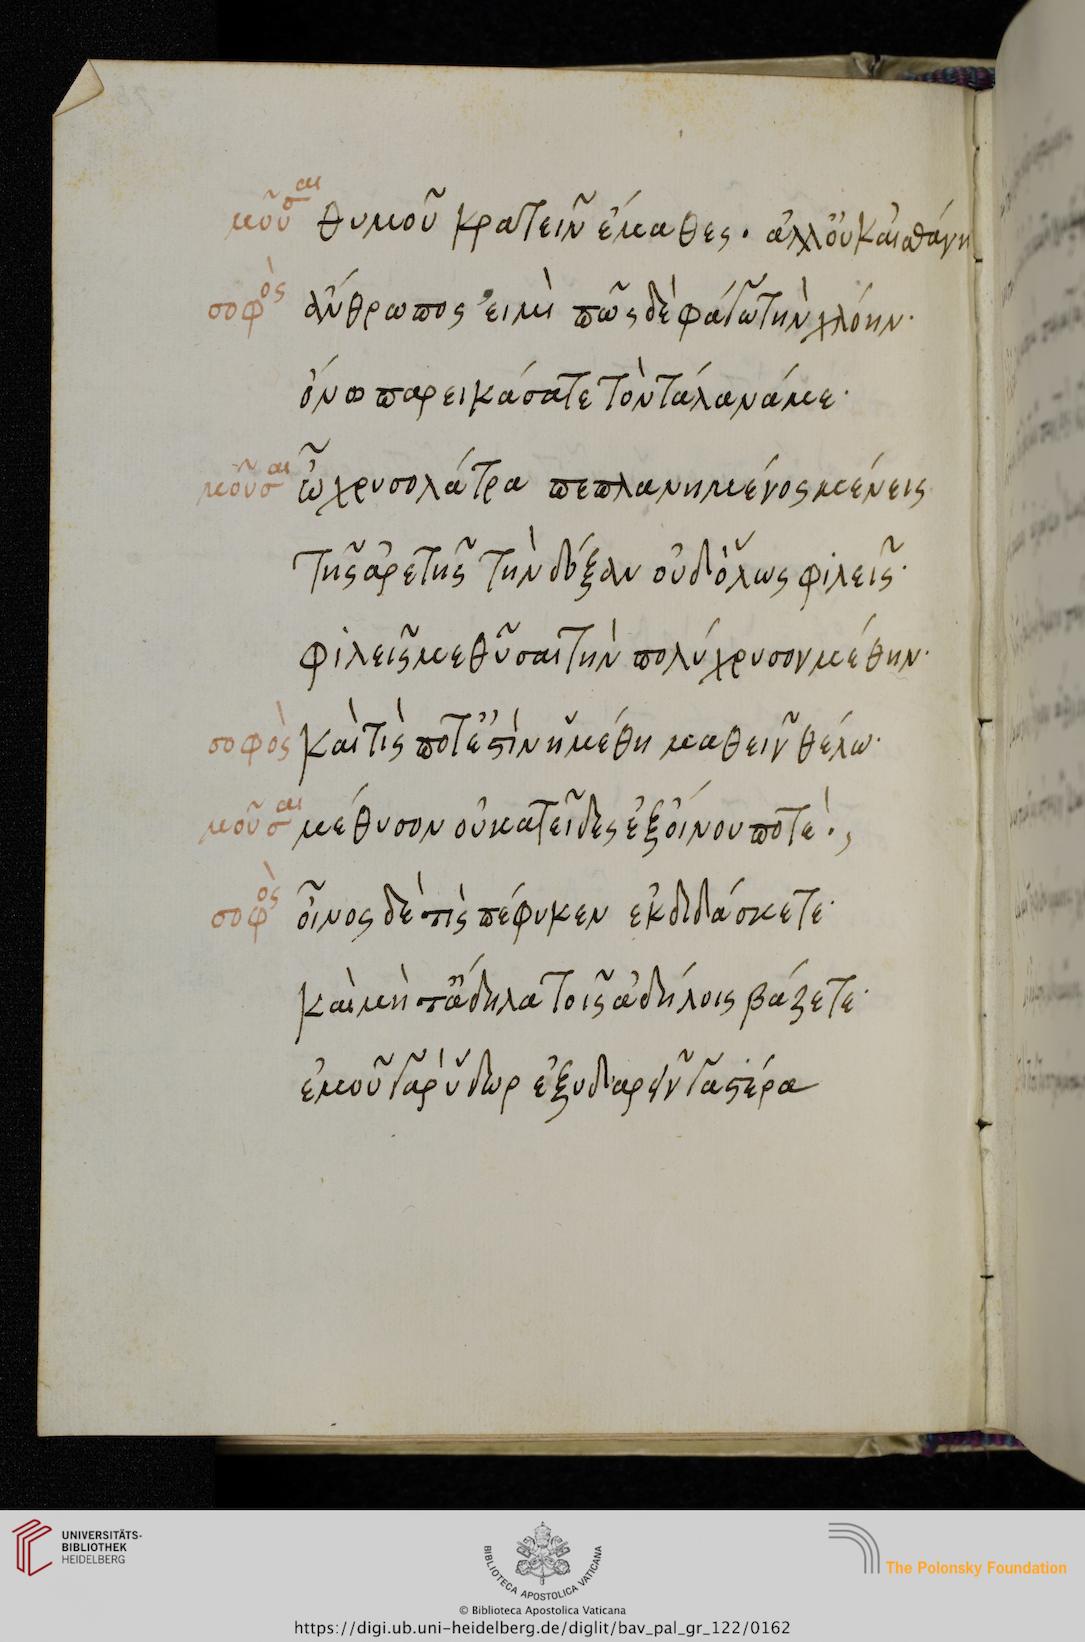 μοῦσαι θυμοῦ κρατεῖν ἔμαθες· ἀλλ' οὐκ
σοφὸς ἄνθρωπος εἰμὶ πῶς δὲ φάγω τὴν χλόην·
ὄνω παρεικάσατε τὸν τάλανά με·
μοῦσαι ὦ χρυσολάτρα πεπλανημένος μένεις
τῆς ἀρετῆς τὴν δόξαν οὐδ' ὅλως φιλεῖς·
φιλεῖς μεθῦσαι τὴν πολύχρυσον μέθην·
σοφὸς καὶ τίς ποτ' ἐστὶν ἡ μέθη μαθεῖν θέλω·
μοῦσαι μέθυσον οὐ κατεῖδες ἐξ οἴνου ποτέ·,
σοφὸς οἶνος δὲ τίς πέφυκεν ἐκδιδάσκετε·
καὶ μὴ τἄδηλα τοῖς ἀδήλοις βάζετε·
ἐμοῦ γὰρ ὕδωρ ἐξυδαροῖ γαστέρα
UNIVERSITÄTS-
BIBLIOTHEK
HEIDELBERG
BIBLIOTECA APOSTOLICA VATICANA
The Polonsky Foundation
© Biblioteca Apostolica Vaticana
https://digi.ub.uni-heidelberg.de/diglit/bav_pal_gr_122/0162